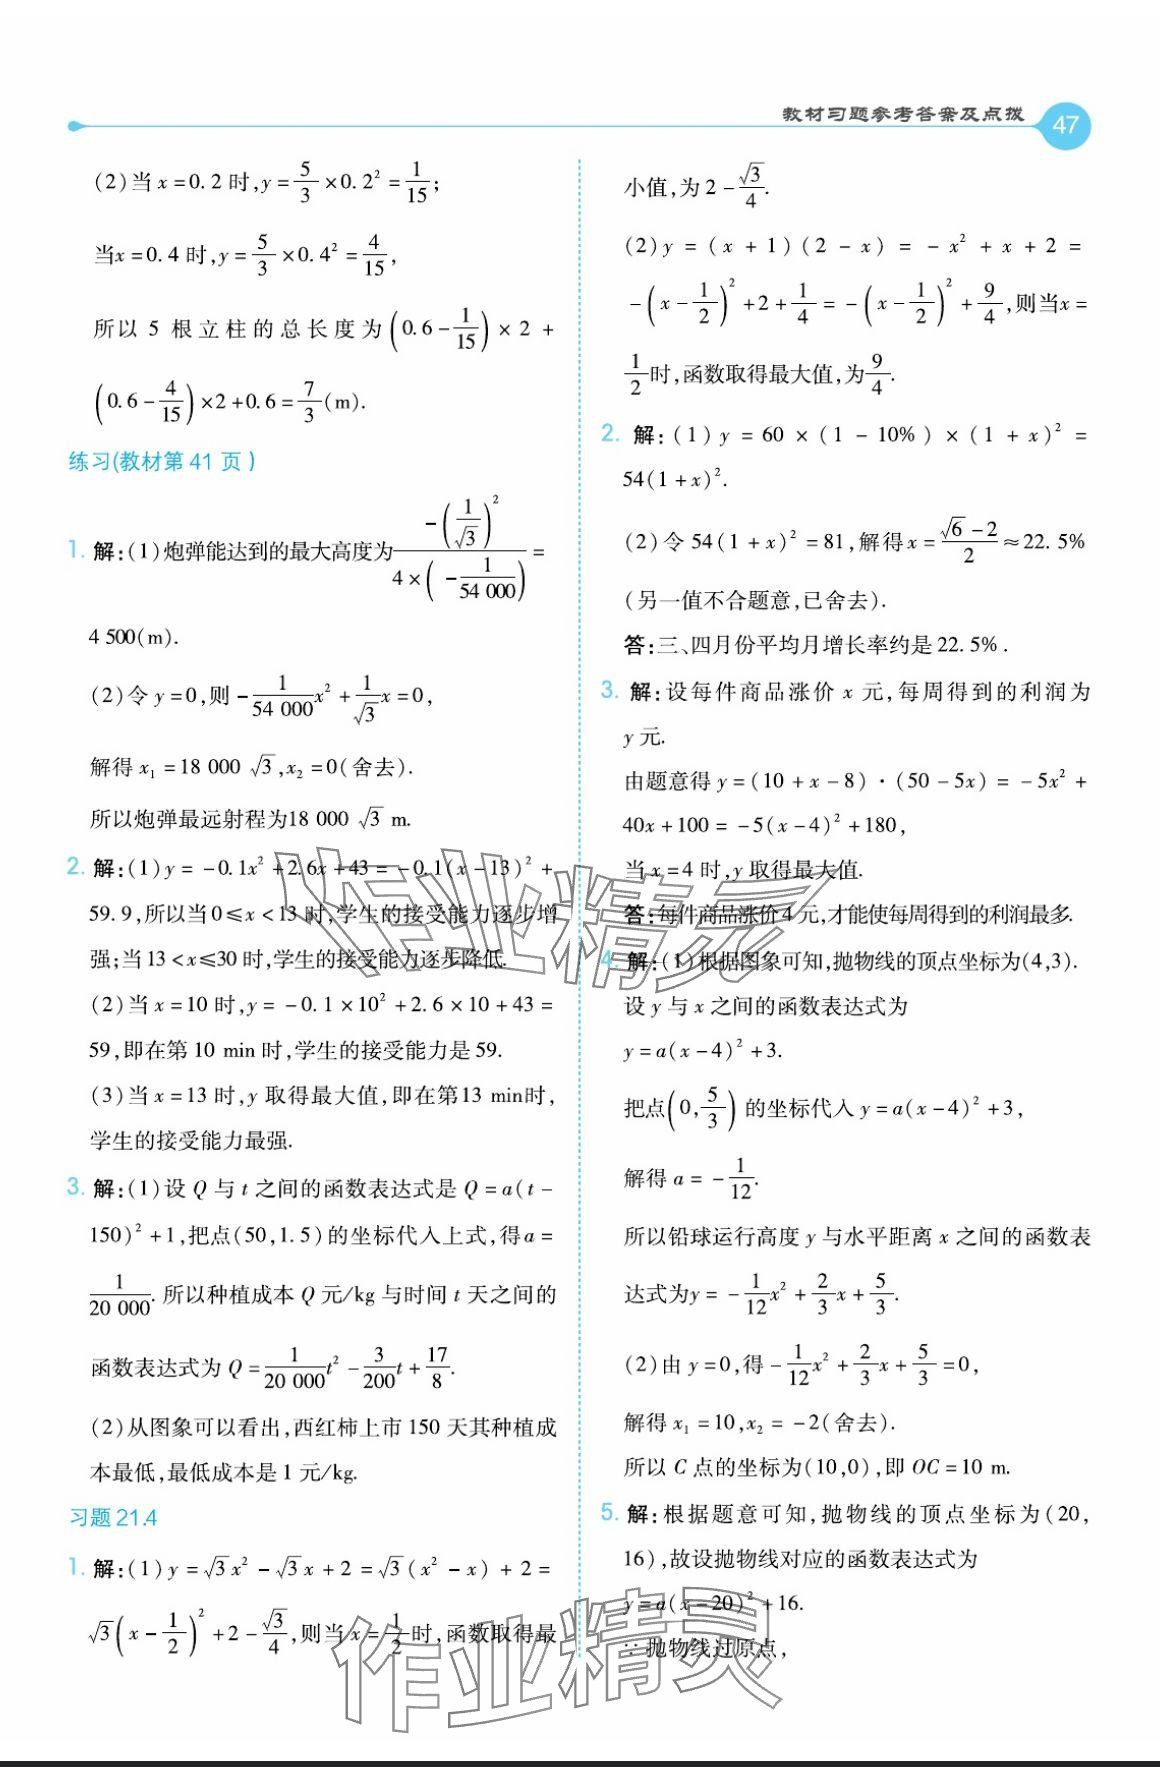 教材习题参考答案及点拨 47
(2)当 x=0.2 时,y=5/3×0.2²=1/15;
当x=0.4 时,y=5/3×0.4²=4/15,
所以 5 根立柱的总长度为(0.6-1/15)×2+
(0.6-4/15)×2+0.6=7/3(m).
练习(教材第 41 页)
1. 解:(1)炮弹能达到的最大高度为-(1/√3)²/4×(-1/54 000)=
4 500(m).
(2)令 y=0,则 -1/54 000x²+1/√3x=0,
解得 x₁=18 000 √3,x₂=0(舍去).
所以炮弹最远射程为18 000 √3 m.
2. 解:(1)y=-0.1x²+2.6x+43=-0.1(x-13)²+
59.9,所以当0≤x<13时,学生的接受能力逐步增
强;当 13<x≤30 时,学生的接受能力逐步降低.
(2)当 x=10 时,y=-0.1×10²+2.6×10+43=
59,即在第 10 min 时,学生的接受能力是 59.
(3)当 x=13 时,y 取得最大值,即在第13 min时,
学生的接受能力最强.
3. 解:(1)设 Q 与 t 之间的函数表达式是 Q=a(t-
150)²+1,把点(50,1.5)的坐标代入上式,得a=
1/20 000.所以种植成本 Q 元/kg 与时间 t 天之间的
函数表达式为 Q=1/20 000t²-3/200t+17/8.
(2)从图象可以看出,西红柿上市 150 天其种植成
本最低,最低成本是 1 元/kg.
习题 21.4
1. 解:(1)y=√3x²-√3x+2=√3(x²-x)+2=
√3(x-1/2)²+2-√3/4,则当 x=1/2时,函数取得最
小值,为 2-√3/4.
(2)y=(x+1)(2-x)=-x²+x+2=
-(x-1/2)²+2+1/4=-(x-1/2)²+9/4,则当x=
1/2时,函数取得最大值,为9/4.
2. 解:(1)y=60×(1-10%)×(1+x)²=
54(1+x)².
(2)令 54(1+x)²=81,解得x=√6-2/2≈22.5%
(另一值不合题意,已舍去).
答:三、四月份平均月增长率约是 22.5%.
3. 解:设每件商品涨价 x 元,每周得到的利润为
y 元.
由题意得 y=(10+x-8)·(50-5x)=-5x²+
40x+100=-5(x-4)²+180,
当 x=4 时,y 取得最大值.
答:每件商品涨价 4 元,才能使每周得到的利润最多.
4. 解:(1)根据图象可知,抛物线的顶点坐标为(4,3).
设 y 与 x 之间的函数表达式为
y=a(x-4)²+3.
把点(0,5/3)的坐标代入 y=a(x-4)²+3,
解得 a=-1/12.
所以铅球运行高度 y 与水平距离 x 之间的函数表
达式为y=-1/12x²+2/3x+5/3.
(2)由 y=0,得-1/12x²+2/3x+5/3=0,
解得 x₁=10,x₂=-2(舍去).
所以 C 点的坐标为(10,0),即 OC=10 m.
5. 解:根据题意可知,抛物线的顶点坐标为(20,
16),故设抛物线对应的函数表达式为
y=a(x-20)²+16.
∵抛物线过原点,
作业精灵
作业精灵